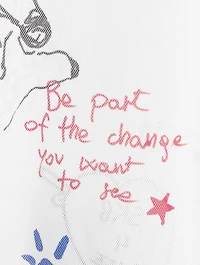 Be part
of the change
you want
to see